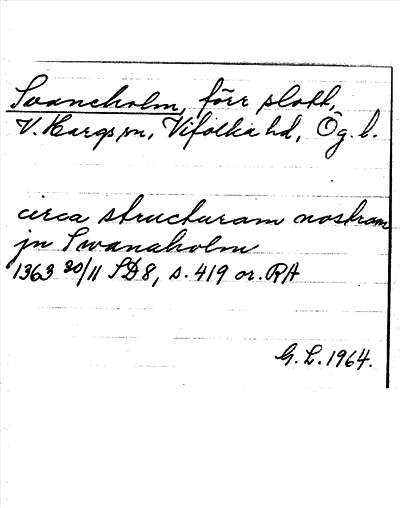 Svaneholm, förr slott,
V. Hargs sn, Vifolka hd, Ög. l.
circa structuram nostram
jn Swanaholm
1363 20/11 SD8, s. 419 or. RA
G. L. 1964.